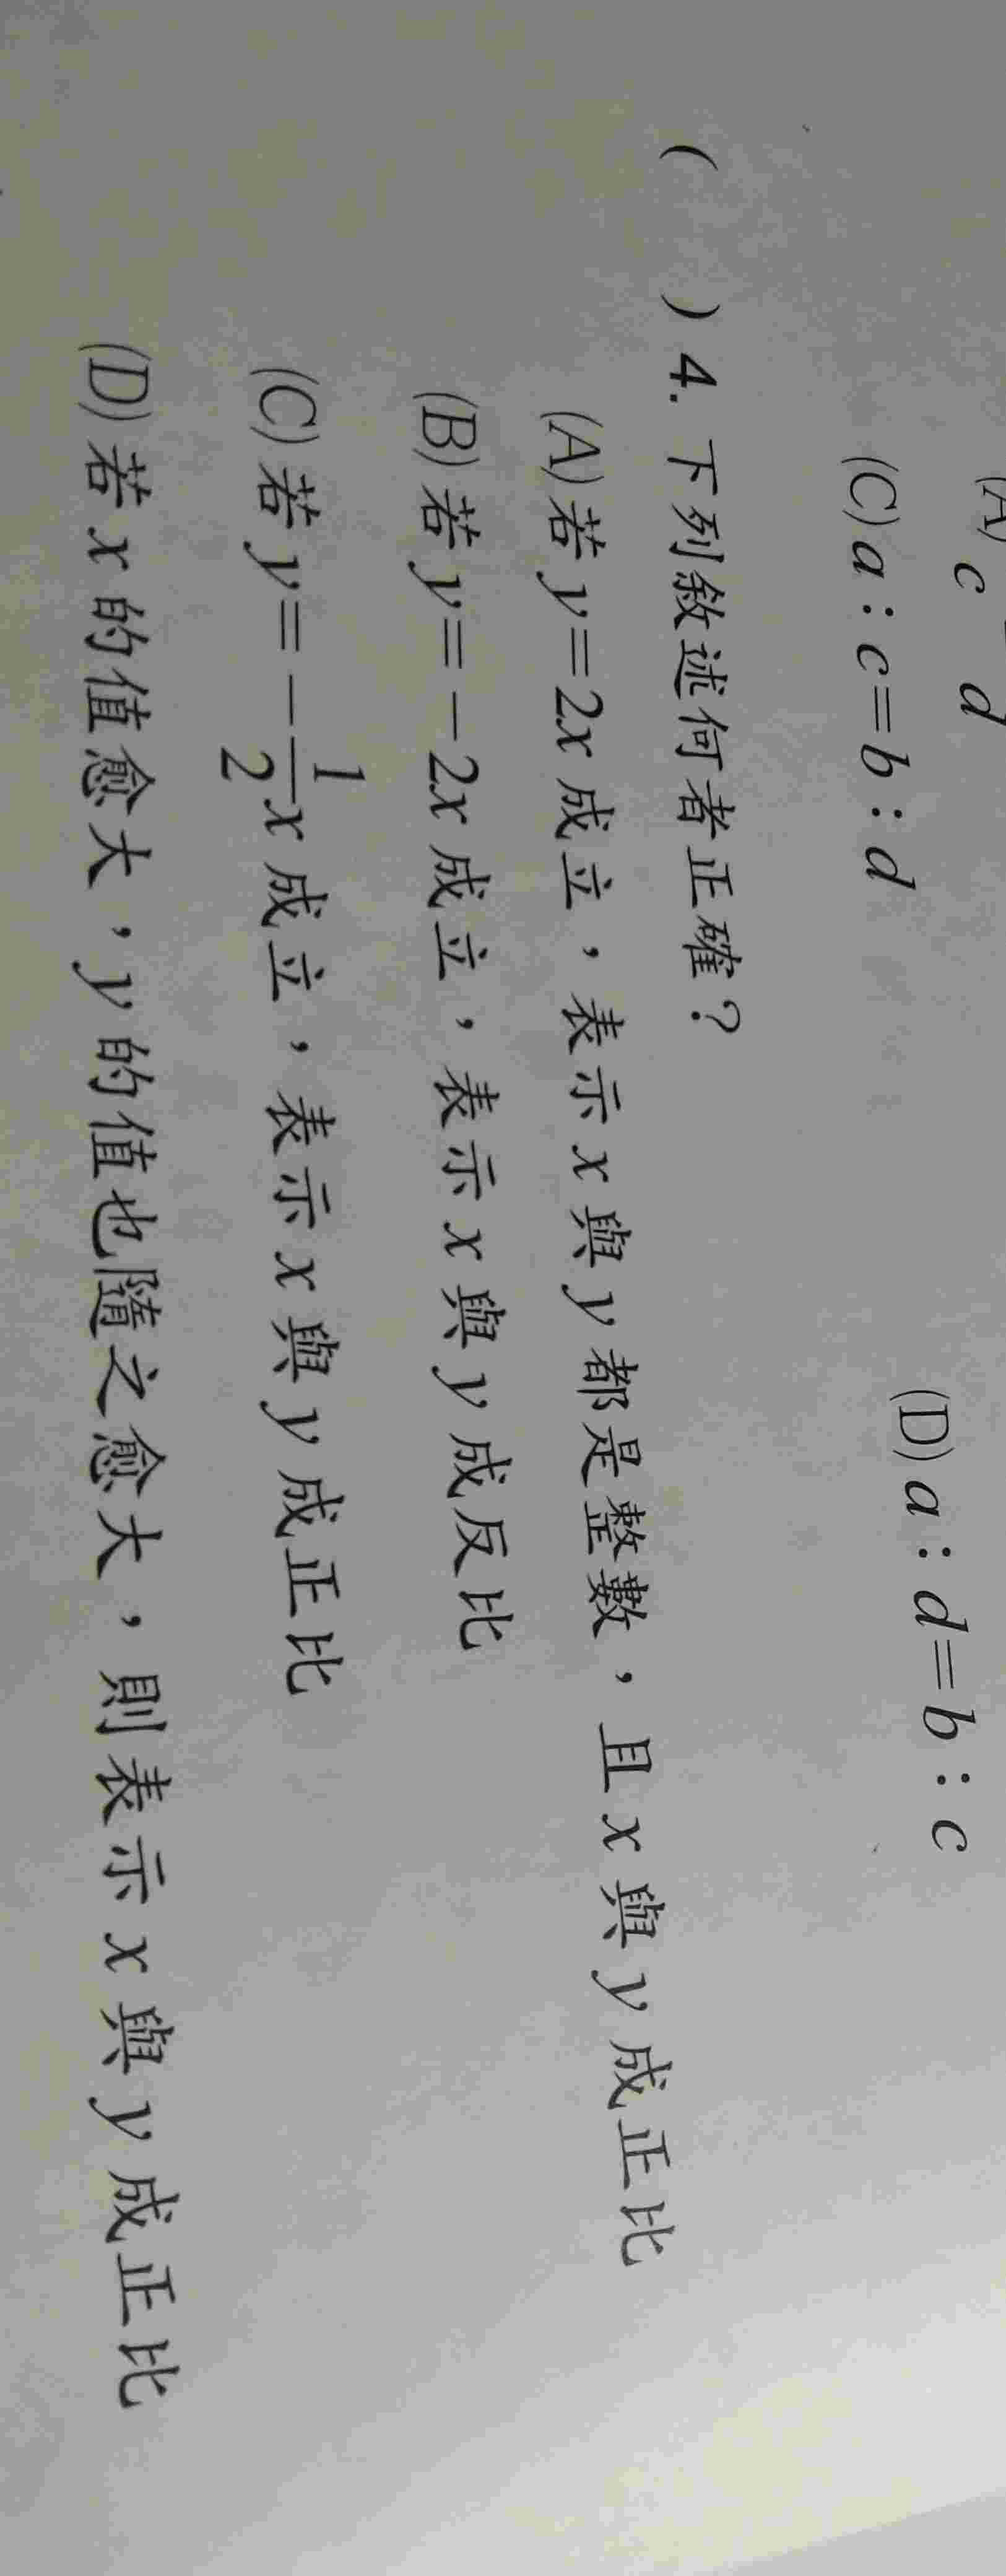 (A) c d
(C) a：c＝b：d (D) a：d＝b：c
( ) 4. 下列敘述何者正確？
(A) 若 y＝2x 成立，表示 x 與 y 都是整數，且 x 與 y 成正比
(B) 若 y＝－2x 成立，表示 x 與 y 成反比
(C) 若 y＝－1/2 x 成立，表示 x 與 y 成正比
(D) 若 x 的值愈大，y 的值也隨之愈大，則表示 x 與 y 成正比